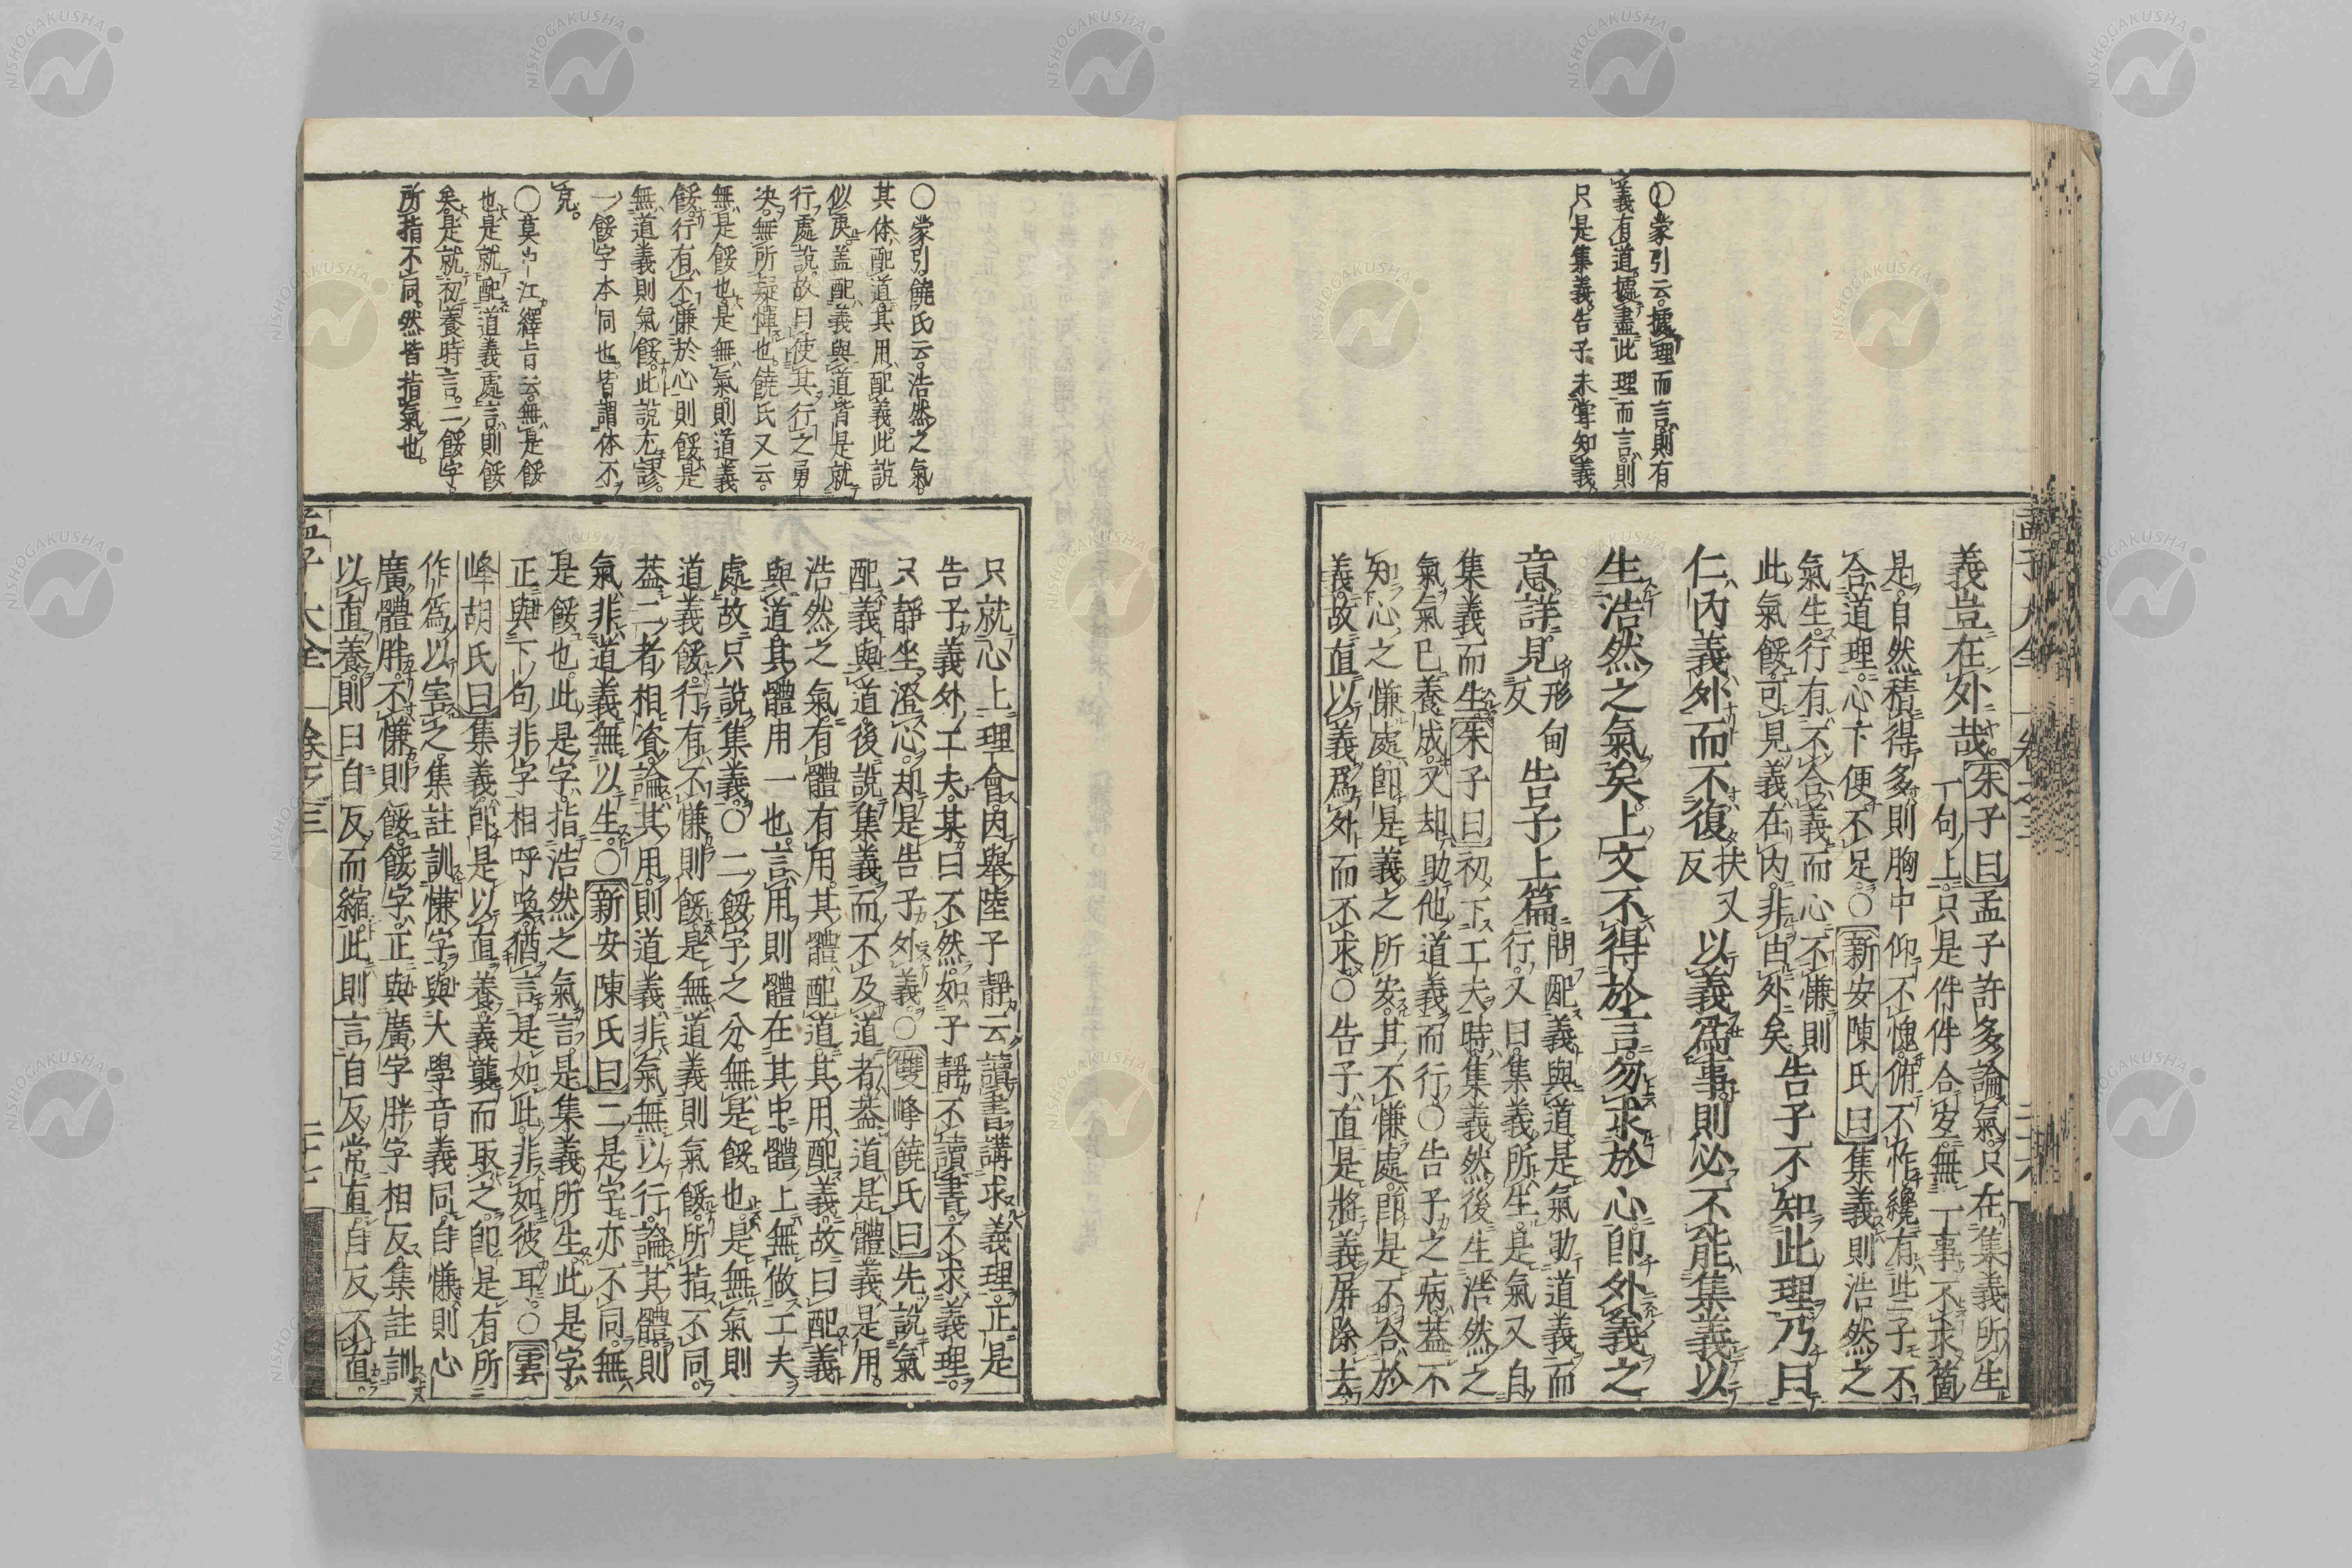 ○蒙引云。據理而言。則有
義有道。據盡此理而言。則
只是集義。告子未嘗知義
義豈在外哉。朱子曰孟子許多論氣。只在集義所生
一句上。只是件件合宜。無一事不求箇
是。自然積得多。則胸中仰不愧。俯不怍。纔有些子不
合道理。心下便不足。○新安陳氏曰集義則浩然之
氣生。行有不合義而心不慊則
此氣餒。可見義在内。非由外矣。告子不知此理。乃曰
仁内義外而不復扶又反以義爲事。則必不能集義以
生浩然之氣矣。上文不得於言。勿求於心。即外義之
意。詳見形甸反告子上篇。問配義與道。是氣助道義而
行。又曰集義所生。是氣又自
集義而生。朱子曰初下工夫時。集義。然後生浩然之
氣。氣已養成。又却助他道義而行○告子之病。蓋不
知心之慊處。即是義之所安。其不慊處。即是不合於
義。故直以義爲外而不求○告子直是將義屏除去。
孟子大全 卷之三
○蒙引饒氏云。浩然之氣。
其体配道。其用配義。此說
似戾。蓋配義與道皆是就
行處說。故曰使其行之勇
决。無所疑憚也。饒氏又云。
無是餒也。是無氣則道義
餒。行有不慊於心則餒。是
無道義則氣餒。此說尤謬。
二餒字本同也。皆謂体不
充。
○莫中江繹旨云。無是餒
也。是就配道義處言。則餒
矣。是就初養時言。二餒字。
所指不同。然皆指氣也。
只就心上理會。因舉陸子靜云讀書講求義理。正是
告子義外工夫。某曰不然。如子靜不讀書。不求義理。
只靜坐澄心。却是告子外義。○雙峰饒氏曰先說氣
配義與道。後說集義而不及道者。蓋道是體義是用。
浩然之氣。有體有用。其體配道。其用配義。故曰配義
與道。其體用一也。言用則體在其中。體上無做工夫
處。故只說集義。○二餒字之分。無是餒也。是無氣則
道義餒。行有不慊則餒。是無道義則氣餒。所指不同。
蓋二者相資。論其用。則道義非氣無以行。論其體。則
氣非道義無以生。○新安陳氏曰二是字亦不同。無
是餒也。此是字。指浩然之氣言。是集義所生。此是字。
正與下句非字相呼喚。猶言是如此。非如彼耳。○雲
峰胡氏曰集義。即是以直養。義襲而取之。即是有所
作爲以害之。集註訓慊字。與大學音義同。自慊則心
廣體胖。不慊則餒。餒字。正與廣字胖字相反。集註訓
以直養。則曰自反而縮。此則言自反常直。自反不直。
孟子大全 卷之三 二十七